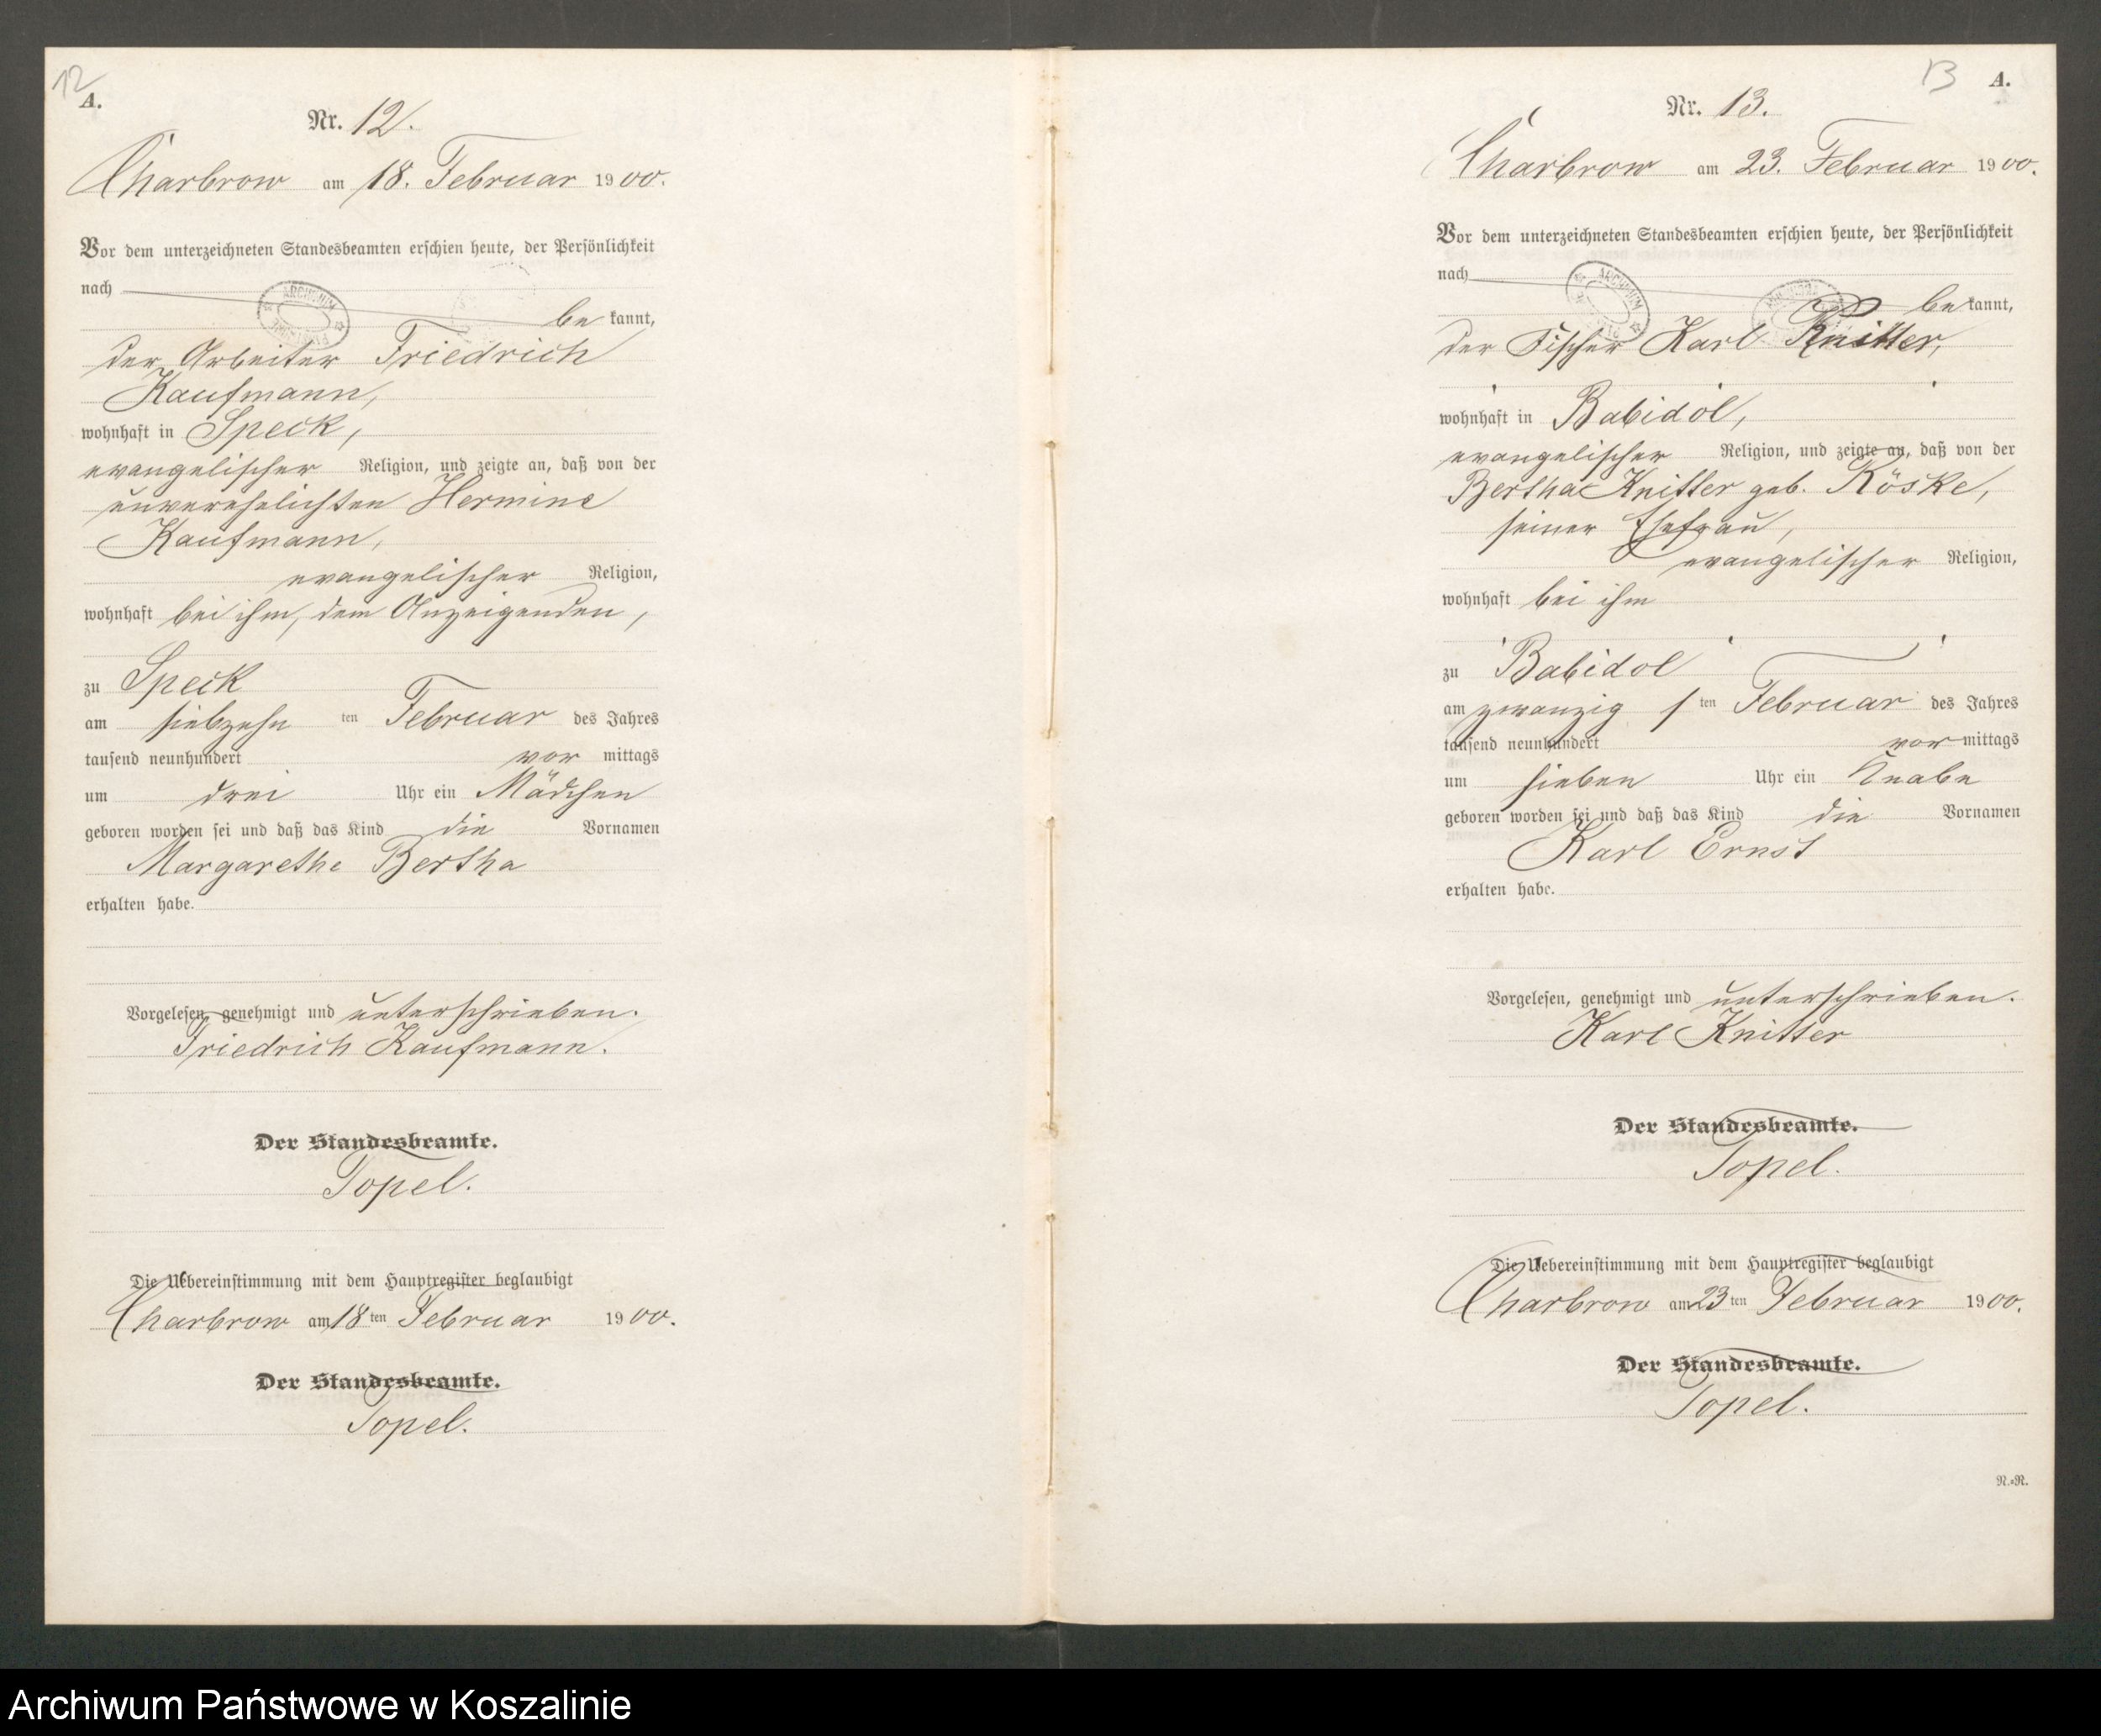 12
A.
Nr. 12.
Charbrow am 18. Februar 1900.
Vor dem unterzeichneten Standesbeamten erschien heute, der Persönlichkeit
nach
be kannt,
der Arbeiter Friedrich
Kaufmann,
wohnhaft in Speck,
evangelischer Religion, und zeigte an, daß von der
unverehelichten Hermine
Kaufmann,
evangelischer Religion,
wohnhaft bei ihm, dem Anzeigenden,
zu Speck
am siebzehn ten Februar des Jahres
tausend neunhundert vor mittags
um drei Uhr ein Mädchen
geboren worden sei und daß das Kind die Vornamen
Margarethe Bertha
erhalten habe.
Vorgelesen, genehmigt und unterschrieben.
Friedrich Kaufmann.
Der Standesbeamte.
Topel.
Die Uebereinstimmung mit dem Hauptregister beglaubigt
Charbrow am 18 ten Februar 1900.
Der Standesbeamte.
Topel.
13 A.
Nr. 13.
Charbrow am 23. Februar 1900.
Vor dem unterzeichneten Standesbeamten erschien heute, der Persönlichkeit
nach
ARCHIWUM
be kannt,
der Fischer Karl Knitter,
wohnhaft in Babidol,
evangelischer Religion, und zeigte an, daß von der
Bertha Knitter geb. Röske,
seiner Ehefrau,
evangelischer Religion,
wohnhaft bei ihm
zu Babidol
am zwanzig ten Februar des Jahres
tausend neunhundert vor mittags
um sieben Uhr ein Knabe
geboren worden sei und daß das Kind die Vornamen
Karl Ernst
erhalten habe.
Vorgelesen, genehmigt und unterschrieben.
Karl Knitter
Der Standesbeamte.
Topel.
Die Uebereinstimmung mit dem Hauptregister beglaubigt
Charbrow am 23 ten Februar 1900.
Der Standesbeamte.
Topel.
N.=N.
Archiwum Państwowe w Koszalinie